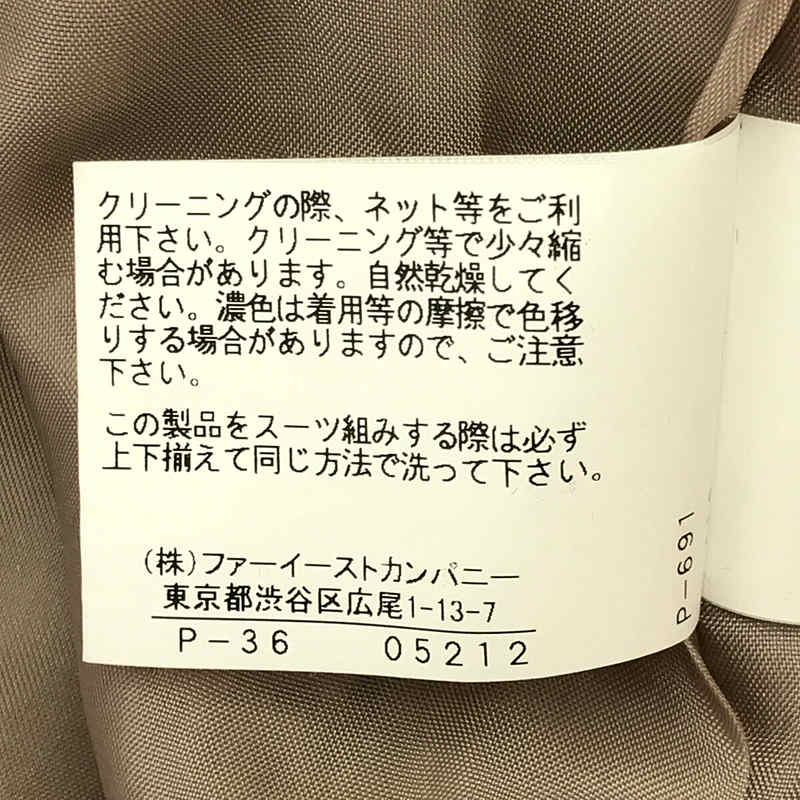 クリーニングの際、ネット等をご利
用下さい。クリーニング等で少々縮
む場合があります。自然乾燥してく
ださい。濃色は着用等の摩擦で色移
りする場合がありますので、ご注意
下さい。
この製品をスーツ組みする際は必ず
上下揃えて同じ方法で洗って下さい。
(株)ファーイーストカンパニー
東京都渋谷区広尾1-13-7
P-36 05212
P-691